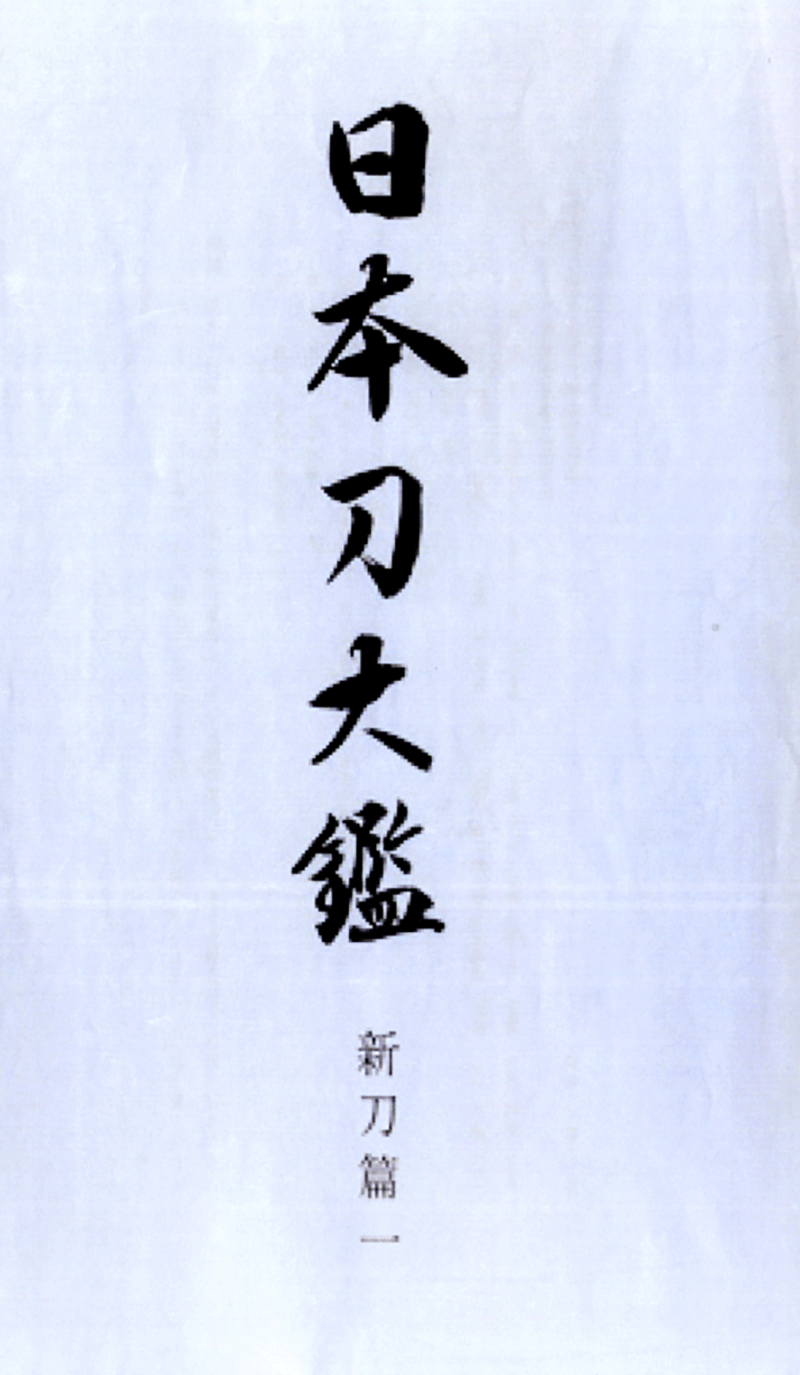 日本刀大鑑
新刀篇一